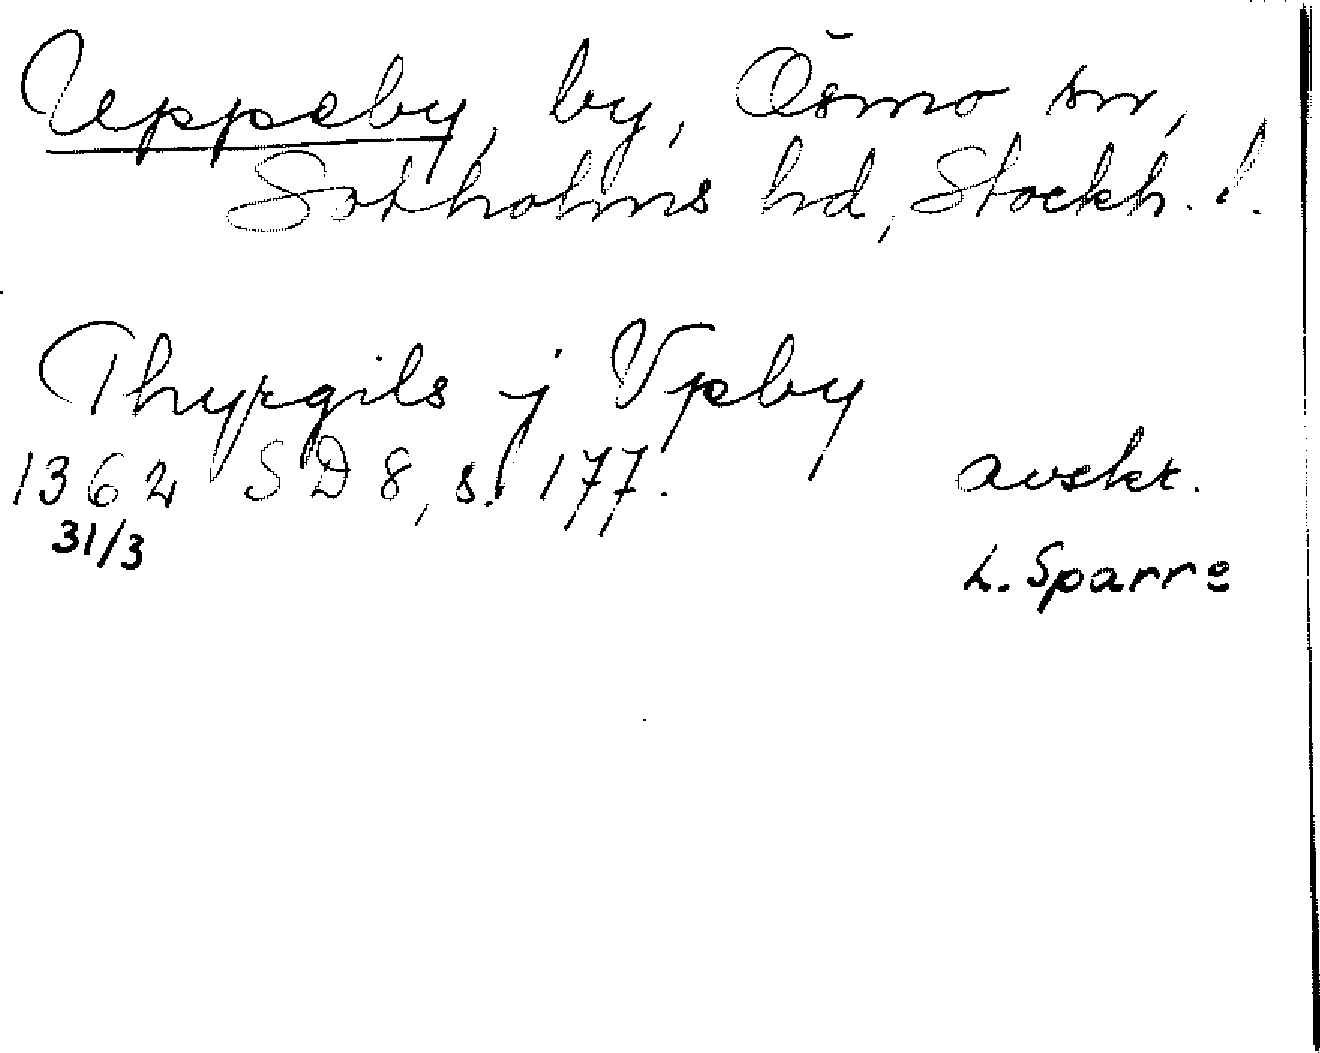 Uppeby, by, Ösmo sn,
Sotholms hd, Stockh. l.
Thyrgils j Vpby
1362 SD 8, s. 177. avskr.
31/3 L. Sparre